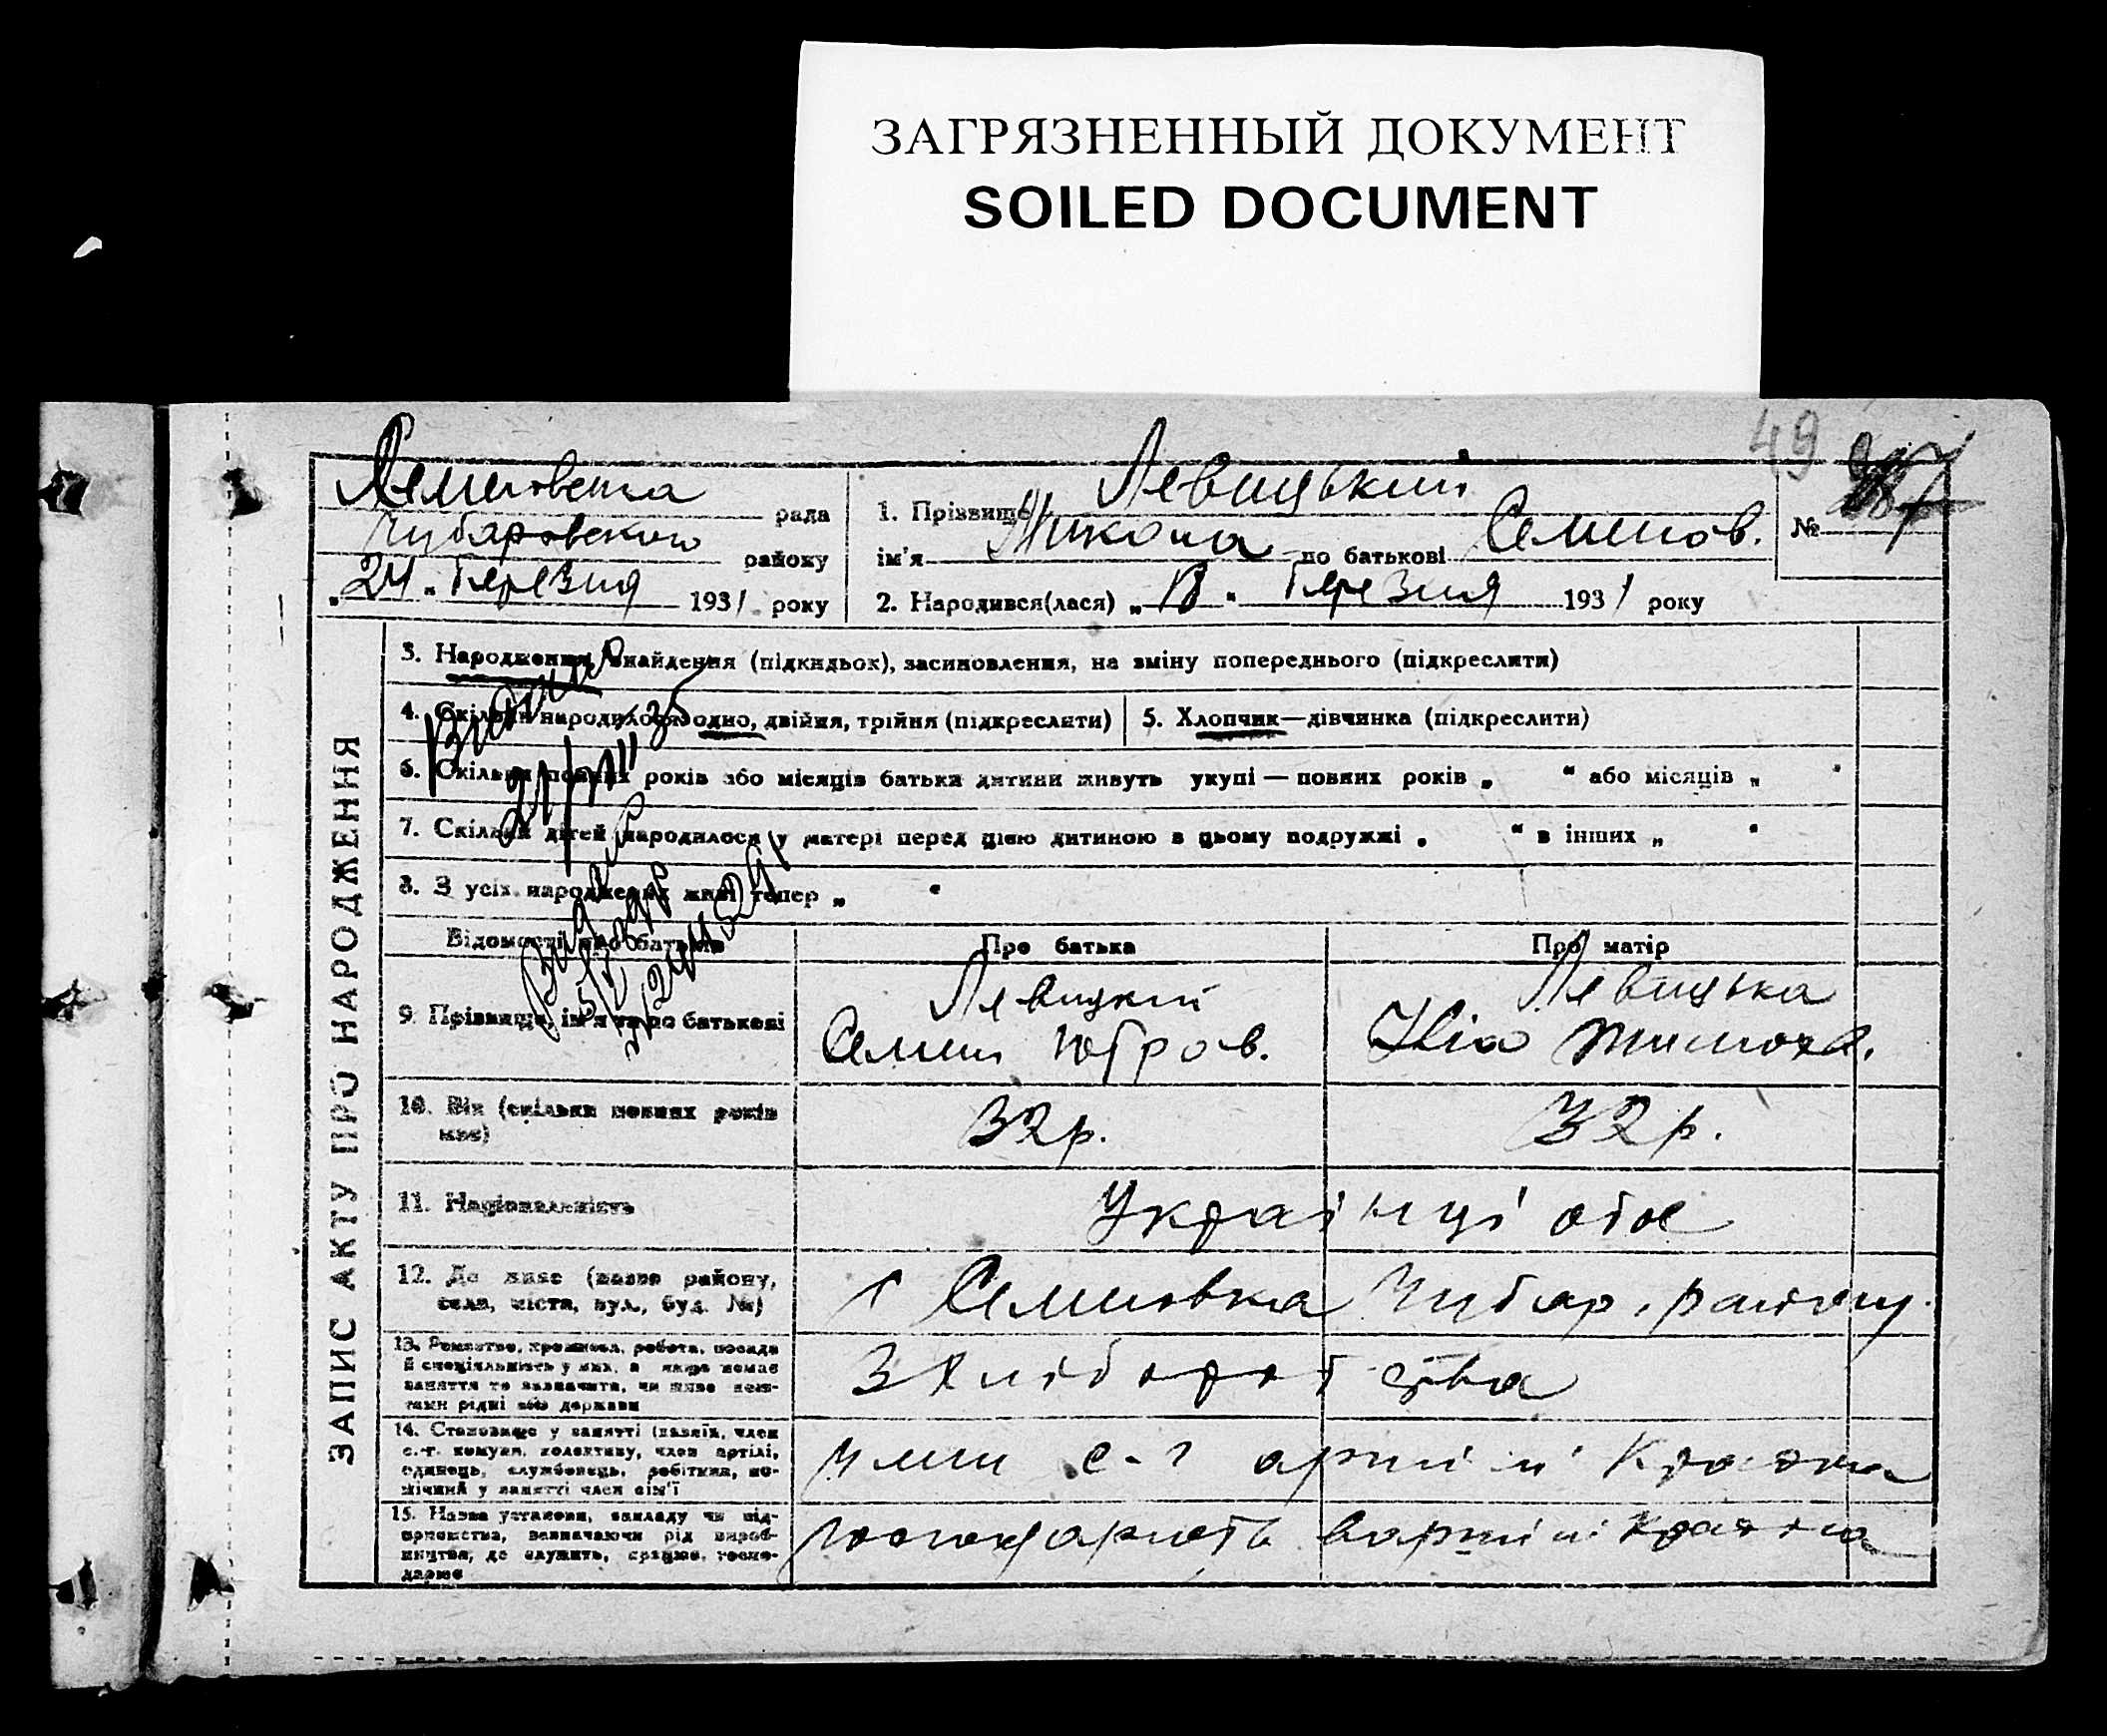 ЗАГРЯЗНЕННЫЙ ДОКУМЕНТ
SOILED DOCUMENT
49
Семеновська рада
Чубаровского району
„24“ березня 1931 року
1. Прізвище Левицький
ім'я Микола по батькові Семенов.
№
2. Народився(лася) „18“ березня 1931 року
ЗАПИС АКТУ ПРО НАРОДЖЕННЯ
3. Народження, знайдення (підкидьок), засиновлення, на зміну попереднього (підкреслити)
4. Скільки народилося: одно, двійня, трійня (підкреслити)
5. Хлопчик—дівчинка (підкреслити)
6. Скільки повних років або місяців батьки дитини живуть укупі — повних років „ “ або місяців „ “
7. Скільки дітей народилося у матері перед цією дитиною в цьому подружжі „ “ в інших „ “
8. З усіх народжених живі тепер „ “
Відомості про батьків
Про батька
Про матір
9. Прізвище, ім'я та по батькові
Левицкий
Семен
Левицька
10. Вік (скільки повних років має)
32 р.
32 р.
11. Національність
Українці обоє
12. Де живе (назва району, села, міста, вул., буд. №)
с Семеновка Чубар. району
13. Ремество, промисел, робота, посада й спеціяльність у них, а якщо немає заняття то визначити, чи живе коштами рідні або держави
З хліборобства
14. Становище у занятті (хазяїн, член с.-г. комуни, колективу, член артілі, одинець, службовець, робітник, помічний у занятті член сім'ї
член с-г артілі
15. Назва установи, закладу чи підприємства, визначаючи рід виробництва, де служить, працює, господарює